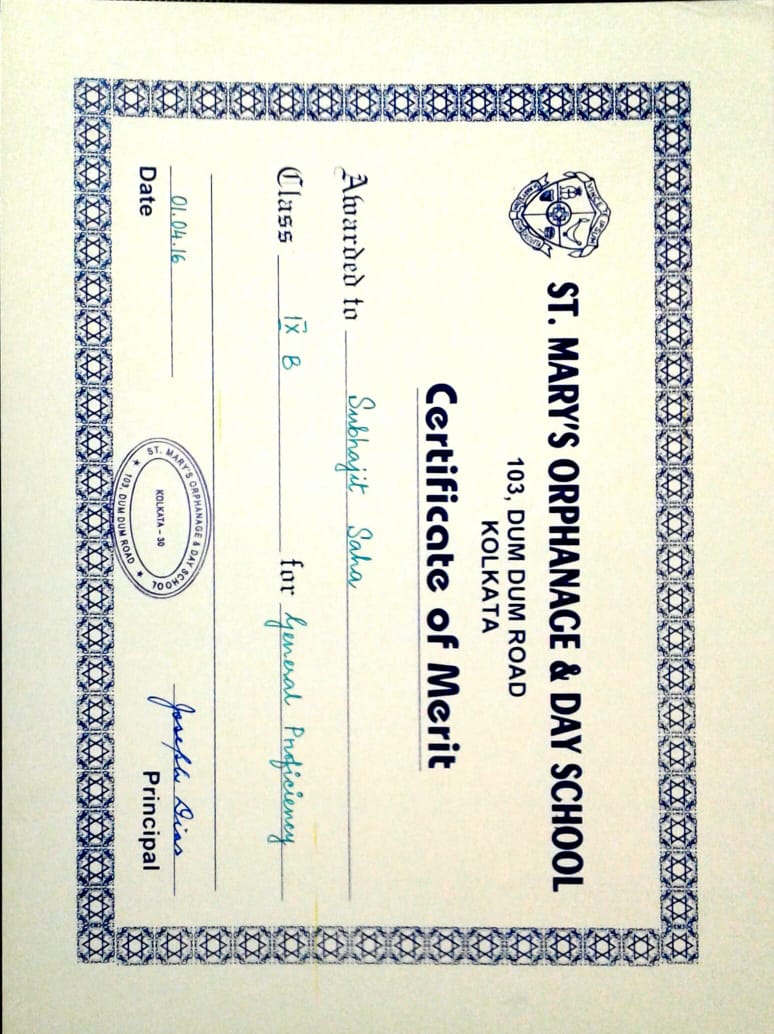 VINCE TE IPSUM
ST. MARY'S ORPHANAGE & DAY SCHOOL
103, DUM DUM ROAD
KOLKATA
Certificate of Merit
Awarded to Subhajit Saha
Class IX B for General Proficiency
01.04.16
Date
ST. MARY'S ORPHANAGE & DAY SCHOOL
KOLKATA – 30
★ 103, DUM DUM ROAD ★
Joseph Dias
Principal